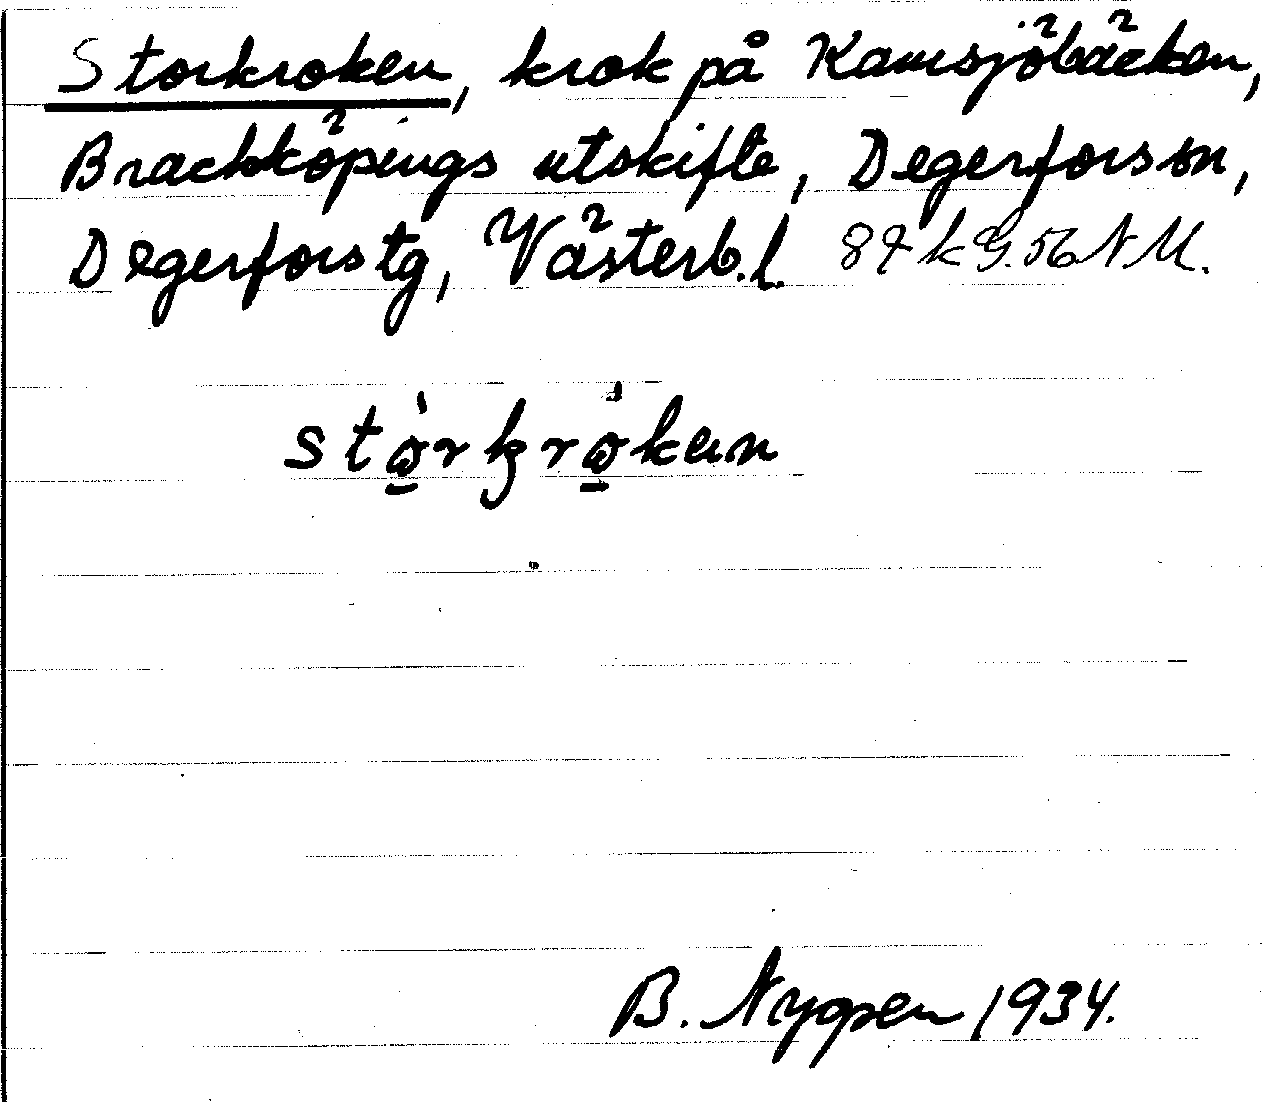 Storkroken, krok på Kamsjöbäcken,
Brackköpings utskifte, Degerfors sn,
Degerfors tg, Västerb.l. 87 k g. 56 NM.
stò̱rkrò̱kεn
B. Nygren 1934.